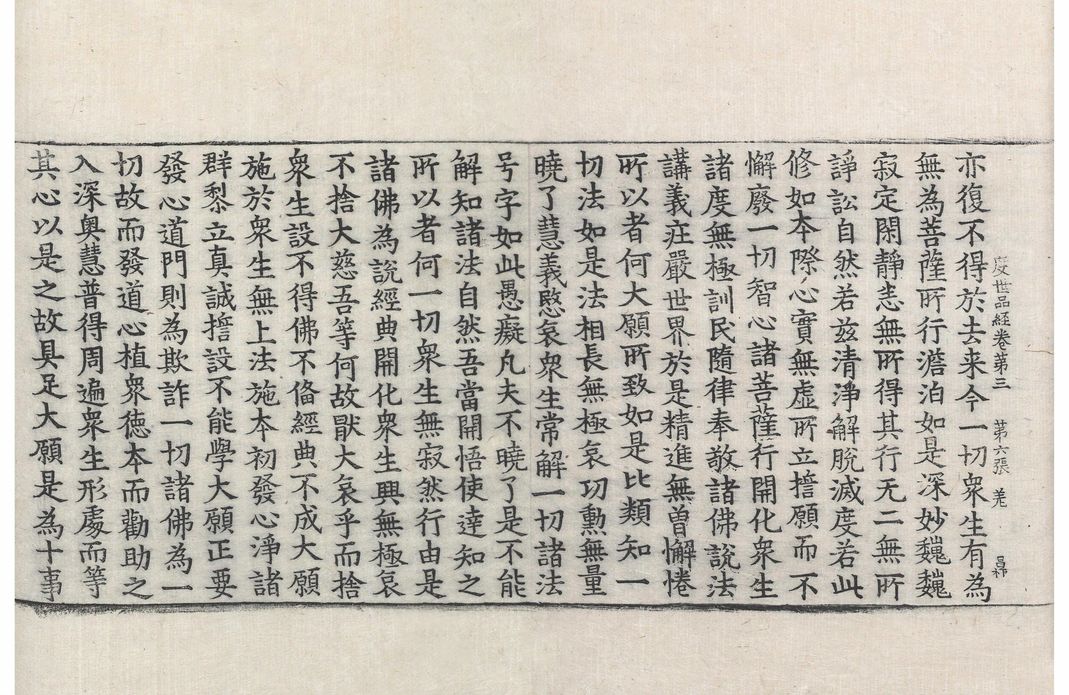 度世品経卷第三 第六張 羌
亦復不得於去来今一切衆生有為
無為菩薩所行澹泊如是深妙巍巍
寂定閑静悉無所得其行无二無所
諍訟自然若兹清淨解脫滅度若此
修如本際心實無虚所立擔願而不
懈廢一切智心諸菩薩行開化衆生
諸度無極訓民隨律奉敬諸佛說法
講義莊嚴世界於是精進無曾懈惓
所以者何大願所致如是比類知一
切法如是法相長無極哀功勳無量
曉了慧義愍哀衆生常解一切諸法
号字如此愚癡凡夫不曉了是不能
解知諸法自然吾當開悟使達知之
所以者何一切衆生無寂然行由是
諸佛為說經典開化衆生興無極哀
不捨大慈吾等何故猒大哀乎而捨
衆生設不得佛不俻經典不成大願
施於衆生無上法施本初發心淨諸
群黎立真誠擔設不能學大願正要
發心道門則為欺詐一切諸佛為一
切故而發道心植衆德本而勸助之
入深奥慧普得周遍衆生形處而等
其心以是之故具足大願是為十事